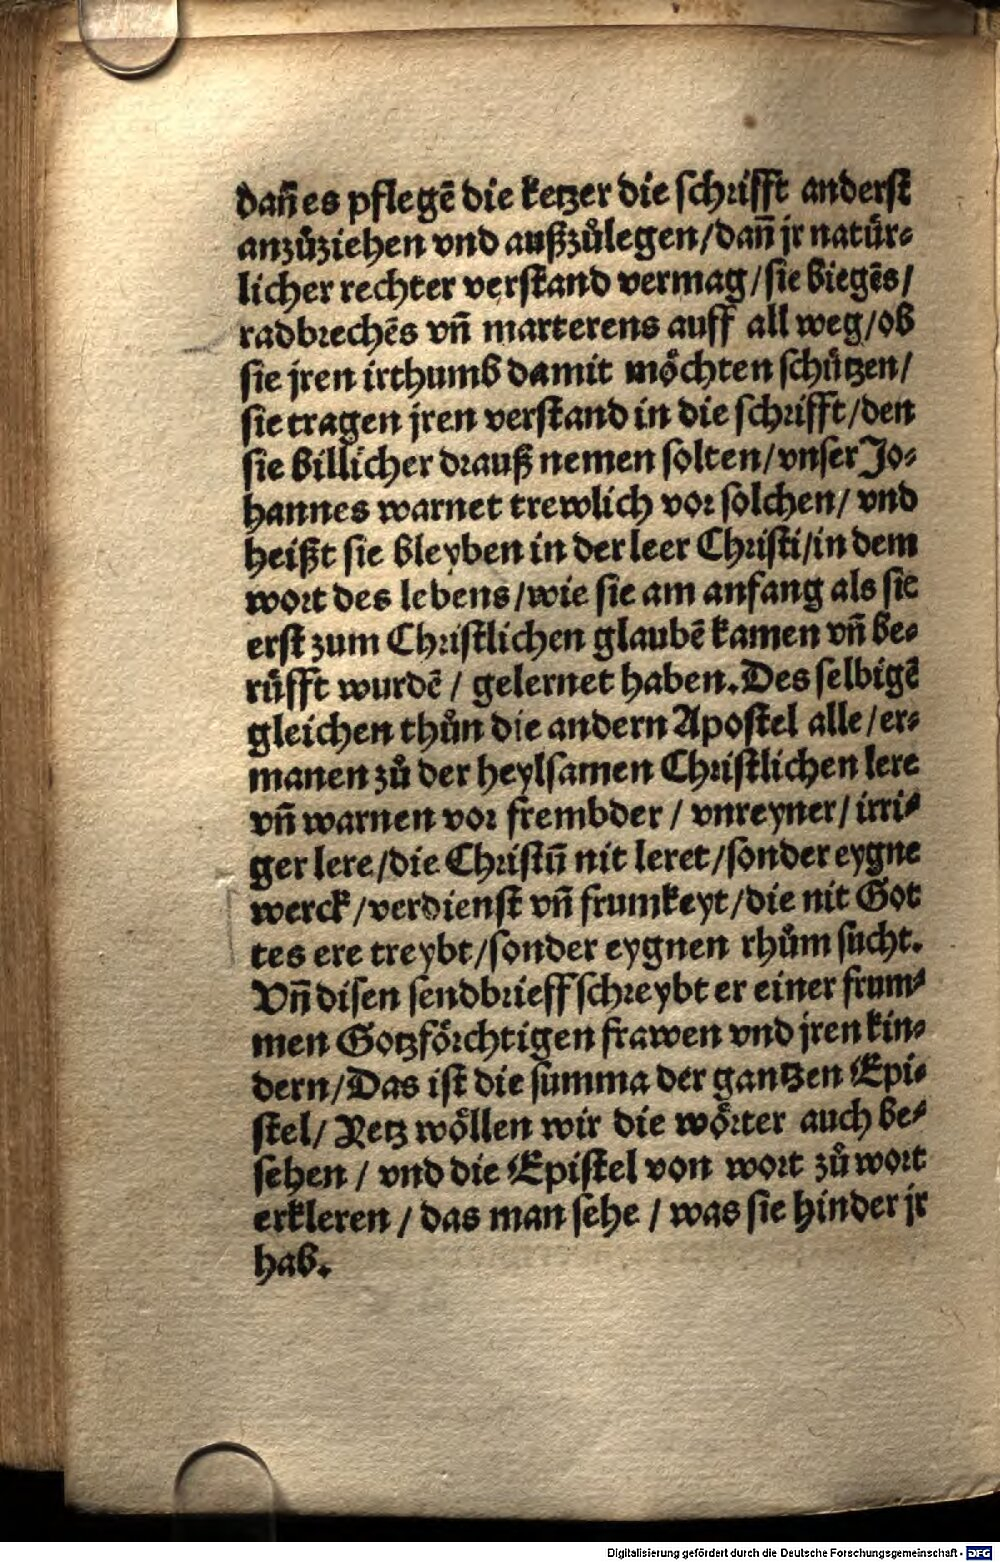 dañ es pflegẽ die ketzer die schrifft anderst
anzůziehen vnd außzůlegen/dañ jr natür⸗
licher rechter verstand vermag/sie biegẽs/
radbrechẽs vñ marterens auff all weg/ob
sie jren irthumb damit möchten schützen/
sie tragen jren verstand in die schrifft/den
sie billicher drauß nemen solten/vnser Jo⸗
hannes warnet trewlich vor solchen/ vnd
heißt sie bleyben in der leer Christi/in dem
wort des lebens/wie sie am anfang als sie
erst zum Christlichen glaubẽ kamen vñ be⸗
rüfft wurdẽ / gelernet haben. Des selbigẽ
gleichen thůn die andern Apostel alle/er⸗
manen zů der heylsamen Christlichen lere
vñ warnen vor frembder / vnreyner/ irri⸗
ger lere/die Christũ nit leret/sonder eygne
werck/verdienst vñ frumkeyt/die nit Got
tes ere treybt/sonder eygnen rhům sucht.
Vñ disen sendbrieff schreybt er einer frum⸗
men Gotzförchtigen frawen vnd jren kin⸗
dern/Das ist die summa der gantzen Epi⸗
stel/ Yetz wöllen wir die wörter auch be⸗
sehen / vnd die Epistel von wort zů wort
erkleren / das man sehe / was sie hinder jr
hab.
Digitalisierung gefördert durch die Deutsche Forschungsgemeinschaft - DFG